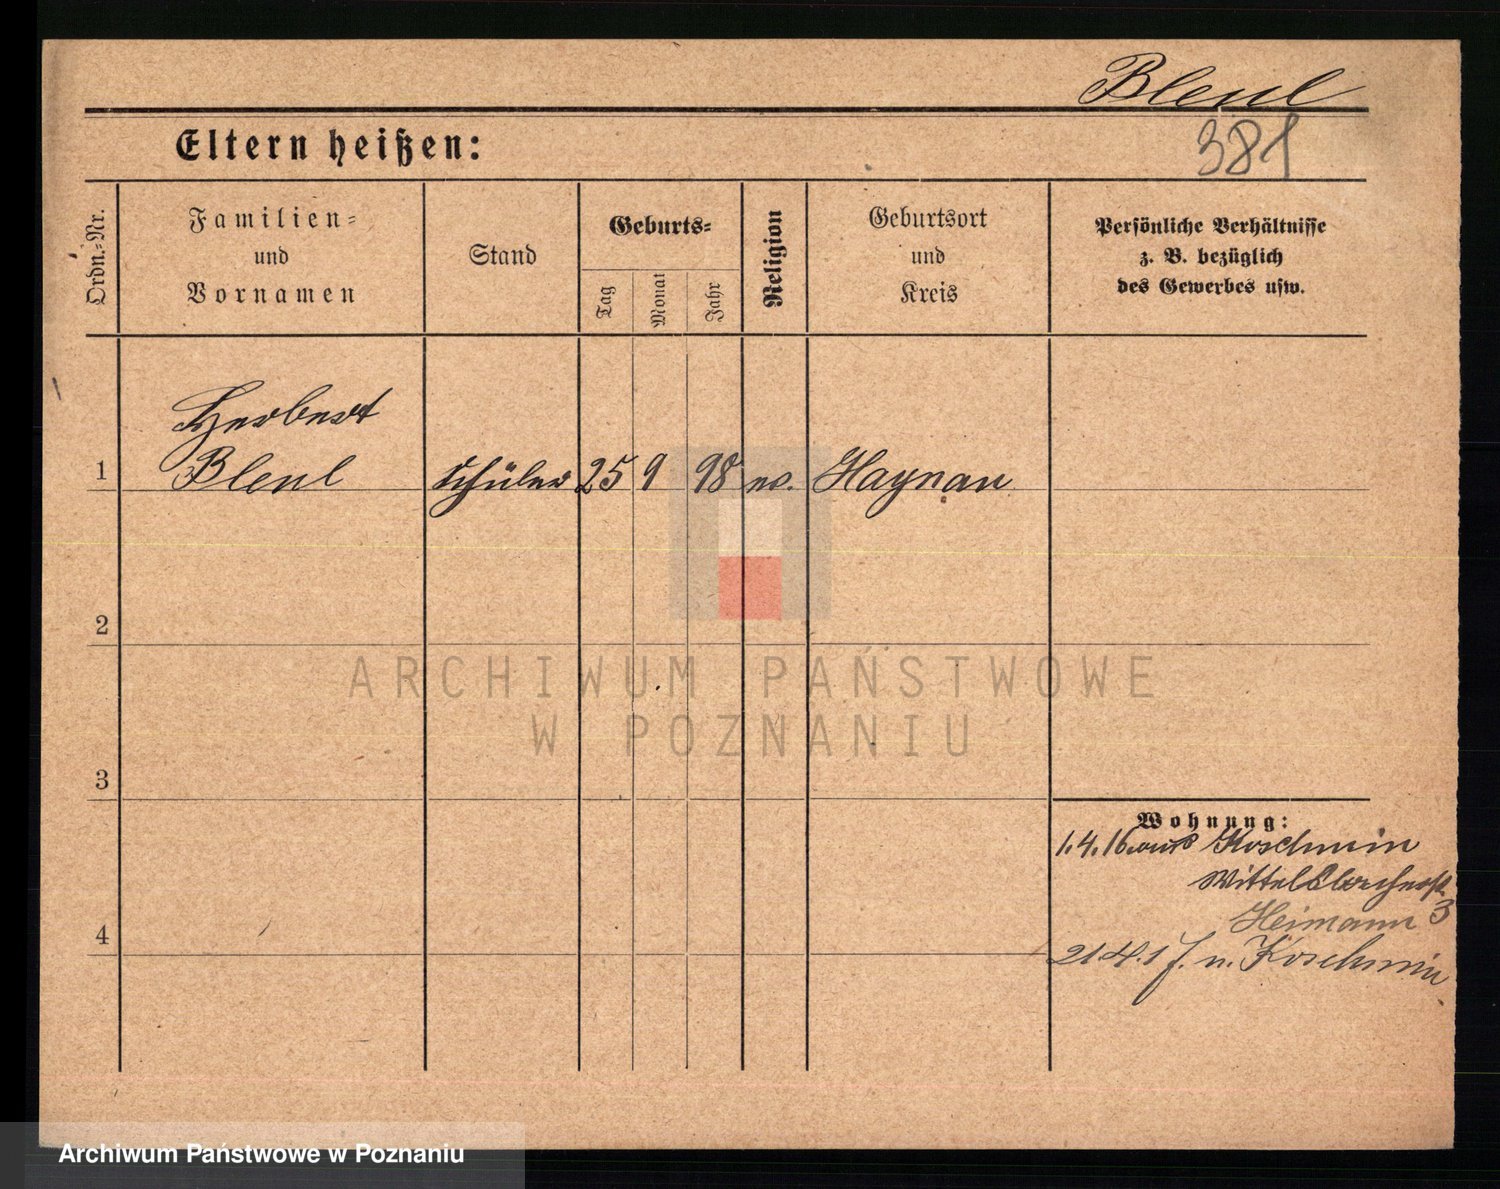 Bleul
381
Eltern heißen:
Ordn.=Nr.
Familien=
und
Vornamen
Stand
Geburts=
Tag
Monat
Jahr
Religion
Geburtsort
und
Kreis
Persönliche Verhältnisse
z. B. bezüglich
des Gewerbes usw.
Herbert
1 Bleul Schüler 25 9 98 ev. Haynau
2
ARCHIWUM PAŃSTWOWE
W POZNANIU
3
Wohnung:
1.4.16 aus Koschmin
Wittelsbacherst.
Heimann 3
4
21.4.17 n. Koschmin
Archiwum Państwowe w Poznaniu